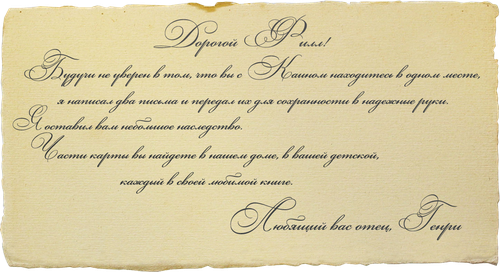 Дорогой Филл!
Будучи не уверен в том, что вы с Каином находитесь в одном месте,
я написал два письма и передал их для сохранности в надежные руки.
Я оставил вам небольшое наследство.
Части карты вы найдете в нашем доме, в вашей детской,
каждый в своей любимой книге.
Любящий вас отец, Генри